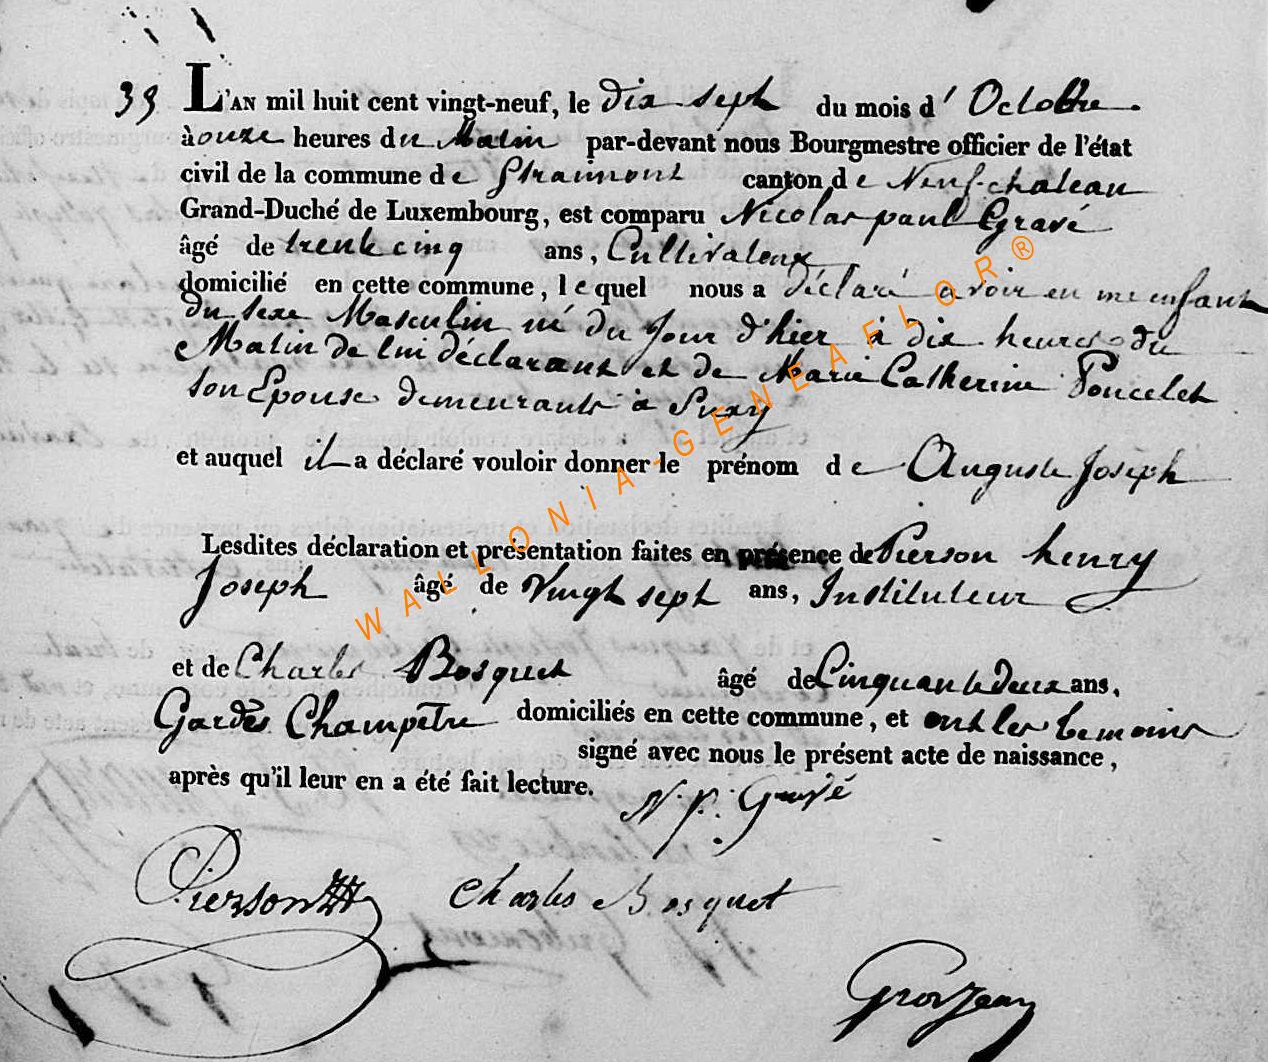 39 L'AN mil huit cent vingt-neuf, le dix sept du mois d' Octobre.
à onze heures du Matin par-devant nous Bourgmestre officier de l'état
civil de la commune de Straimont canton de Neufchateau
Grand-Duché de Luxembourg, est comparu Nicolas paul Gravé
âgé de trente cinq ans, Cultivateur
domicilié en cette commune, lequel nous a déclaré avoir eu un enfant
du sexe Masculin né du Jour d'hier à dix heures du
Matin de lui déclarant et de Marie Catherine Poncelet
son Epouse demeurants à Suxy
et auquel il a déclaré vouloir donner le prénom de Auguste Joseph
Lesdites déclaration et présentation faites en présence de Pierson henry
Joseph âgé de Vingt sept ans, Instituteur
et de Charles Bosquet âgé de Cinquante deux ans,
Gardes Champêtre domiciliés en cette commune, et ont les temoins
signé avec nous le présent acte de naissance,
après qu'il leur en a été fait lecture.
N. p. Gravé
Pierson
Charles Bosquet
Grosjean
WALLONIA-GENEAFLOR®